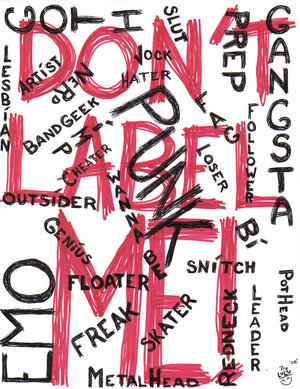 DON'T
LABEL
ME!
GOTH
SLUT
PREP
GANGSTA
LESBIAN
ARTIST
NERD
JOCK
HATER
BANDGEEK
WIMP
CHEATER
PUNK
FAG
LOSER
FOLLOWER
OUTSIDER
WANNABE
Bi
GENiUS
EMO
FLOATER
SNiTCH
POTHEAD
FREAK
SKATER
REDNECK
LEADER
METALHEAD